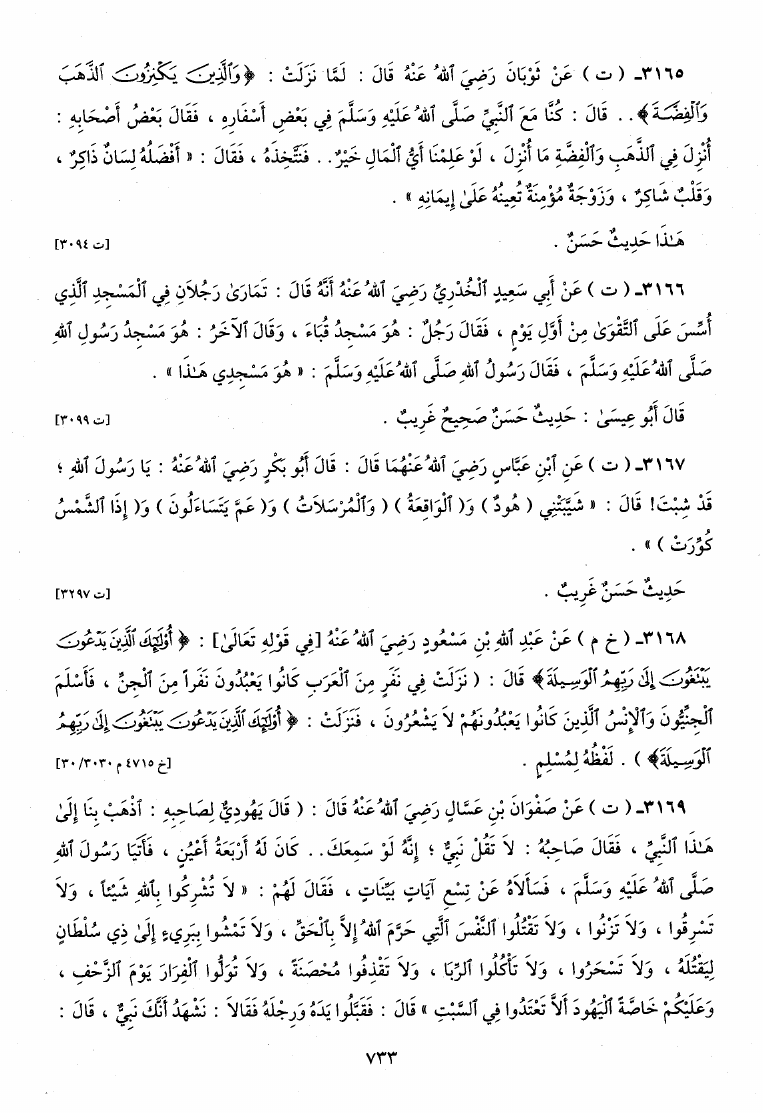 ٣١٦٥ـ ( ت ) عَنْ ثَوْبَانَ رَضِيَ ٱللهُ عَنْهُ قَالَ : لَمَّا نَزَلَتْ : ﴿ وَٱلَّذِينَ يَكْنِزُونَ ٱلذَّهَبَ
وَٱلْفِضَّةَ ﴾ . . قَالَ : كُنَّا مَعَ ٱلنَّبِيِّ صَلَّى ٱللهُ عَلَيْهِ وَسَلَّمَ فِي بَعْضِ أَسْفَارِهِ ، فَقَالَ بَعْضُ أَصْحَابِهِ :
أُنْزِلَ فِي ٱلذَّهَبِ وَٱلْفِضَّةِ مَا أُنْزِلَ ، لَوْ عَلِمْنَا أَيُّ ٱلْمَالِ خَيْرٌ . . فَنَتَّخِذَهُ ، فَقَالَ : « أَفْضَلُهُ لِسَانٌ ذَاكِرٌ ،
وَقَلْبٌ شَاكِرٌ ، وَزَوْجَةٌ مُؤْمِنَةٌ تُعِينُهُ عَلَىٰ إِيمَانِهِ » .
هَـٰذَا حَدِيثٌ حَسَنٌ . [ت ٣٠٩٤]
٣١٦٦ـ ( ت ) عَنْ أَبِي سَعِيدٍ ٱلْخُدْرِيِّ رَضِيَ ٱللهُ عَنْهُ أَنَّهُ قَالَ : تَمَارَىٰ رَجُلَانِ فِي ٱلْمَسْجِدِ ٱلَّذِي
أُسِّسَ عَلَى ٱلتَّقْوَىٰ مِنْ أَوَّلِ يَوْمٍ ، فَقَالَ رَجُلٌ : هُوَ مَسْجِدُ قُبَاءَ ، وَقَالَ ٱلآخَرُ : هُوَ مَسْجِدُ رَسُولِ ٱللهِ
صَلَّى ٱللهُ عَلَيْهِ وَسَلَّمَ ، فَقَالَ رَسُولُ ٱللهِ صَلَّى ٱللهُ عَلَيْهِ وَسَلَّمَ : « هُوَ مَسْجِدِي هَـٰذَا » .
قَالَ أَبُو عِيسَىٰ : حَدِيثٌ حَسَنٌ صَحِيحٌ غَرِيبٌ . [ت ٣٠٩٩]
٣١٦٧ـ ( ت ) عَنِ ٱبْنِ عَبَّاسٍ رَضِيَ ٱللهُ عَنْهُمَا قَالَ : قَالَ أَبُو بَكْرٍ رَضِيَ ٱللهُ عَنْهُ : يَا رَسُولَ ٱللهِ ؛
قَدْ شِبْتَ! قَالَ : « شَيَّبَتْنِي ( هُودٌ ) وَ( ٱلْوَاقِعَةُ ) ( وَٱلْمُرْسَلَاتُ ) وَ( عَمَّ يَتَسَاءَلُونَ ) وَ( إِذَا ٱلشَّمْسُ
كُوِّرَتْ ) » .
حَدِيثٌ حَسَنٌ غَرِيبٌ . [ت ٣٢٩٧]
٣١٦٨ـ ( خ م ) عَنْ عَبْدِ ٱللهِ بْنِ مَسْعُودٍ رَضِيَ ٱللهُ عَنْهُ [فِي قَوْلِهِ تَعَالَىٰ] : ﴿ أُوْلَٰٓئِكَ ٱلَّذِينَ يَدْعُونَ
يَبْتَغُونَ إِلَىٰ رَبِّهِمُ ٱلْوَسِيلَةَ ﴾ قَالَ : ( نَزَلَتْ فِي نَفَرٍ مِنَ ٱلْعَرَبِ كَانُوا يَعْبُدُونَ نَفَراً مِنَ ٱلْجِنِّ ، فَأَسْلَمَ
ٱلْجِنِّيُّونَ وَٱلْإِنْسُ ٱلَّذِينَ كَانُوا يَعْبُدُونَهُمْ لَا يَشْعُرُونَ ، فَنَزَلَتْ : ﴿ أُوْلَٰٓئِكَ ٱلَّذِينَ يَدْعُونَ يَبْتَغُونَ إِلَىٰ رَبِّهِمُ
ٱلْوَسِيلَةَ ﴾ ) . لَفْظُهُ لِمُسْلِمٍ . [خ ٤٧١٥ م ٣٠/٣٠٣٠]
٣١٦٩ـ ( ت ) عَنْ صَفْوَانَ بْنِ عَسَّالٍ رَضِيَ ٱللهُ عَنْهُ قَالَ : ( قَالَ يَهُودِيٌّ لِصَاحِبِهِ : ٱذْهَبْ بِنَا إِلَىٰ
هَـٰذَا ٱلنَّبِيِّ ، فَقَالَ صَاحِبُهُ : لَا تَقُلْ نَبِيٌّ ؛ إِنَّهُ لَوْ سَمِعَكَ . . كَانَ لَهُ أَرْبَعَةُ أَعْيُنٍ ، فَأَتَيَا رَسُولَ ٱللهِ
صَلَّى ٱللهُ عَلَيْهِ وَسَلَّمَ ، فَسَأَلَاهُ عَنْ تِسْعِ آيَاتٍ بَيِّنَاتٍ ، فَقَالَ لَهُمْ : « لَا تُشْرِكُوا بِٱللهِ شَيْئاً ، وَلَا
تَسْرِقُوا ، وَلَا تَزْنُوا ، وَلَا تَقْتُلُوا ٱلنَّفْسَ ٱلَّتِي حَرَّمَ ٱللهُ إِلَّا بِٱلْحَقِّ ، وَلَا تَمْشُوا بِبَرِيءٍ إِلَىٰ ذِي سُلْطَانٍ
لِيَقْتُلَهُ ، وَلَا تَسْحَرُوا ، وَلَا تَأْكُلُوا ٱلرِّبَا ، وَلَا تَقْذِفُوا مُحْصَنَةً ، وَلَا تُوَلُّوا ٱلْفِرَارَ يَوْمَ ٱلزَّحْفِ ،
وَعَلَيْكُمْ خَاصَّةً ٱلْيَهُودَ أَلَّا تَعْتَدُوا فِي ٱلسَّبْتِ » قَالَ : فَقَبَّلُوا يَدَهُ وَرِجْلَهُ فَقَالَا : نَشْهَدُ أَنَّكَ نَبِيٌّ ، قَالَ :
٧٣٣